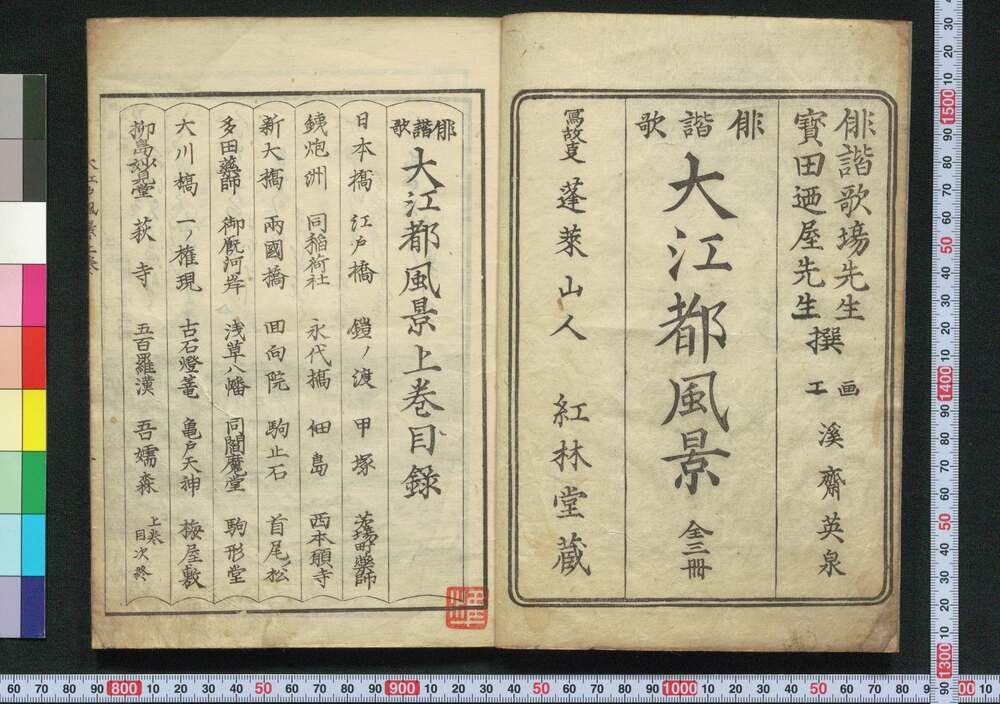 俳諧歌場先生
寳田廼屋先生
撰
画工 溪齋英泉
俳諧歌
大江都風景 全三冊
蓬萊山人 紅林堂蔵
俳諧歌 大江都風景上巻目録
日本橋 江戸橋 鎧ノ渡 甲塚 茅場町藥師
銕炮洲 同稲荷社 永代橋 佃島 西本願寺
新大橋 兩國橋 回向院 駒止石 首尾ノ松
多田藥師 御厩河岸 浅草八幡 同閻魔堂 駒形堂
大川橋 一ノ権現 古石燈篭 亀戸天神 梅屋敷
柳島妙見堂 萩寺 五百羅漢 吾嬬森 上巻目次終